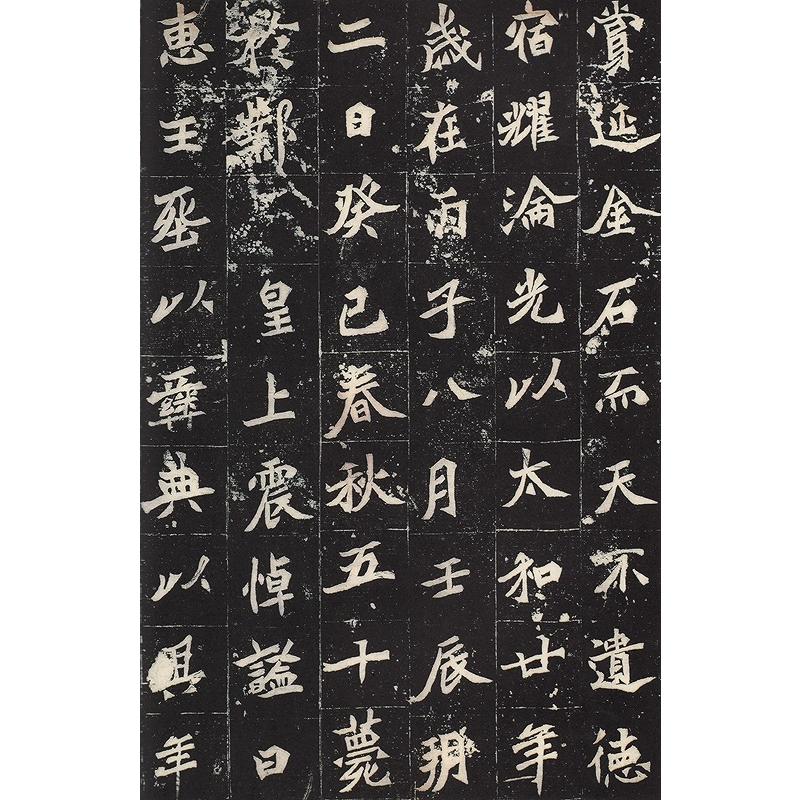 賞延金石而天不遺德
宿耀淪光以太和廿年
歲在丙子八月壬辰朔
二日癸巳春秋五十薨
於鄴　皇上震悼謚曰
惠王葬以彝典以其年